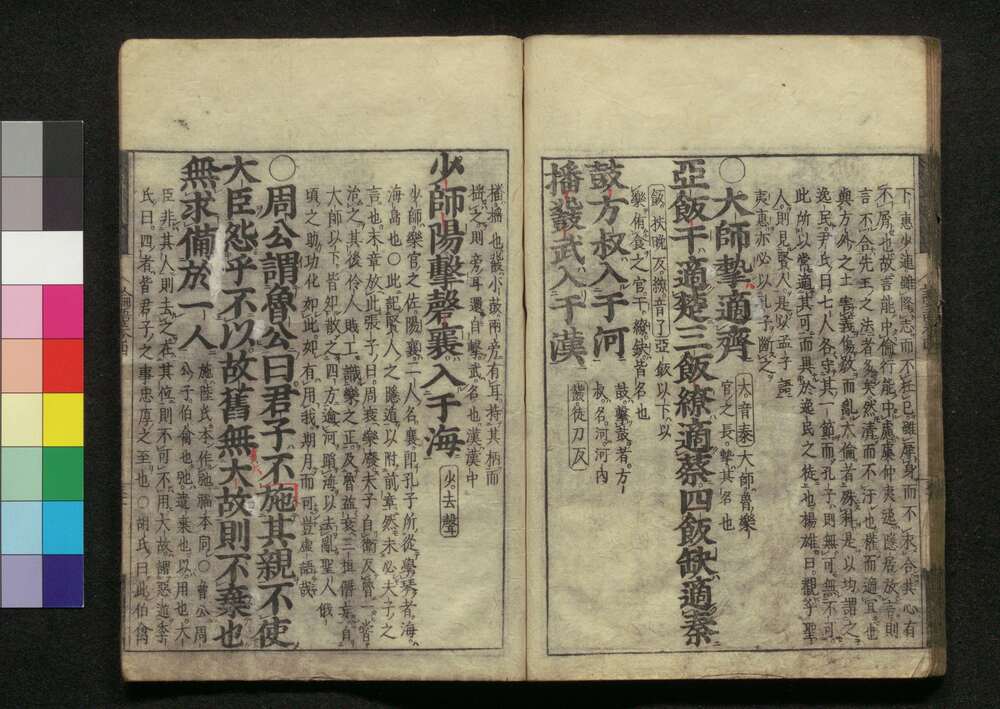 下惠少連雖降志而不枉己雖辱身而不求合其心有
不屑也故言能中倫行能中慮虞仲夷逸隱居放言則
言不合先王之法者多矣然清而不汙也權而適宜也
與方外之士害義傷教而亂大倫者殊科是以均謂之
逸民尹氏曰七人各守其一節而孔子則無可無不可
此所以常適其可而異於逸民之徒也揚雄曰觀乎聖
人則見賢人是以孟子語
夷惠亦必以孔子斷之
○大師摯適齊
大音泰大師魯樂
官之長摯其名也
亞飯干適楚三飯繚適蔡四飯缺適秦
飯扶晚反繚音了亞飯以下以
樂侑食之官干繚缺皆名也
鼓方叔入于河
鼓擊鼓者方
叔名河河內
播鼗武入于漢
鼗徒刀反
播搖也鼗小鼓兩旁有耳持其柄而
搖之則旁耳還自擊武名也漢漢中
少師陽擊磬襄入于海
少去聲
少師樂官之佐陽襄二人名襄即孔子所從學琴者海
海島也○此記賢人之隱遁以附前章然未必夫子之
言也末章放此張子曰周衰樂廢夫子自衛反魯一嘗
治之其後伶人賤工識樂之正及魯益衰三桓僭妄自
大師以下皆知散之四方逾河蹈海以去亂聖人俄
頃之助功化如此如有用我期月而可豈虛語哉
○周公謂魯公曰君子不施其親不使
大臣怨乎不以故舊無大故則不棄也
無求備於一人
施陸氏本作弛福本同○魯公周
公子伯禽也弛遺棄也以用也大
臣非其人則去之在其位則不可不用大故謂惡逆李
氏曰四者皆君子之事忠厚之至也○胡氏曰此伯禽